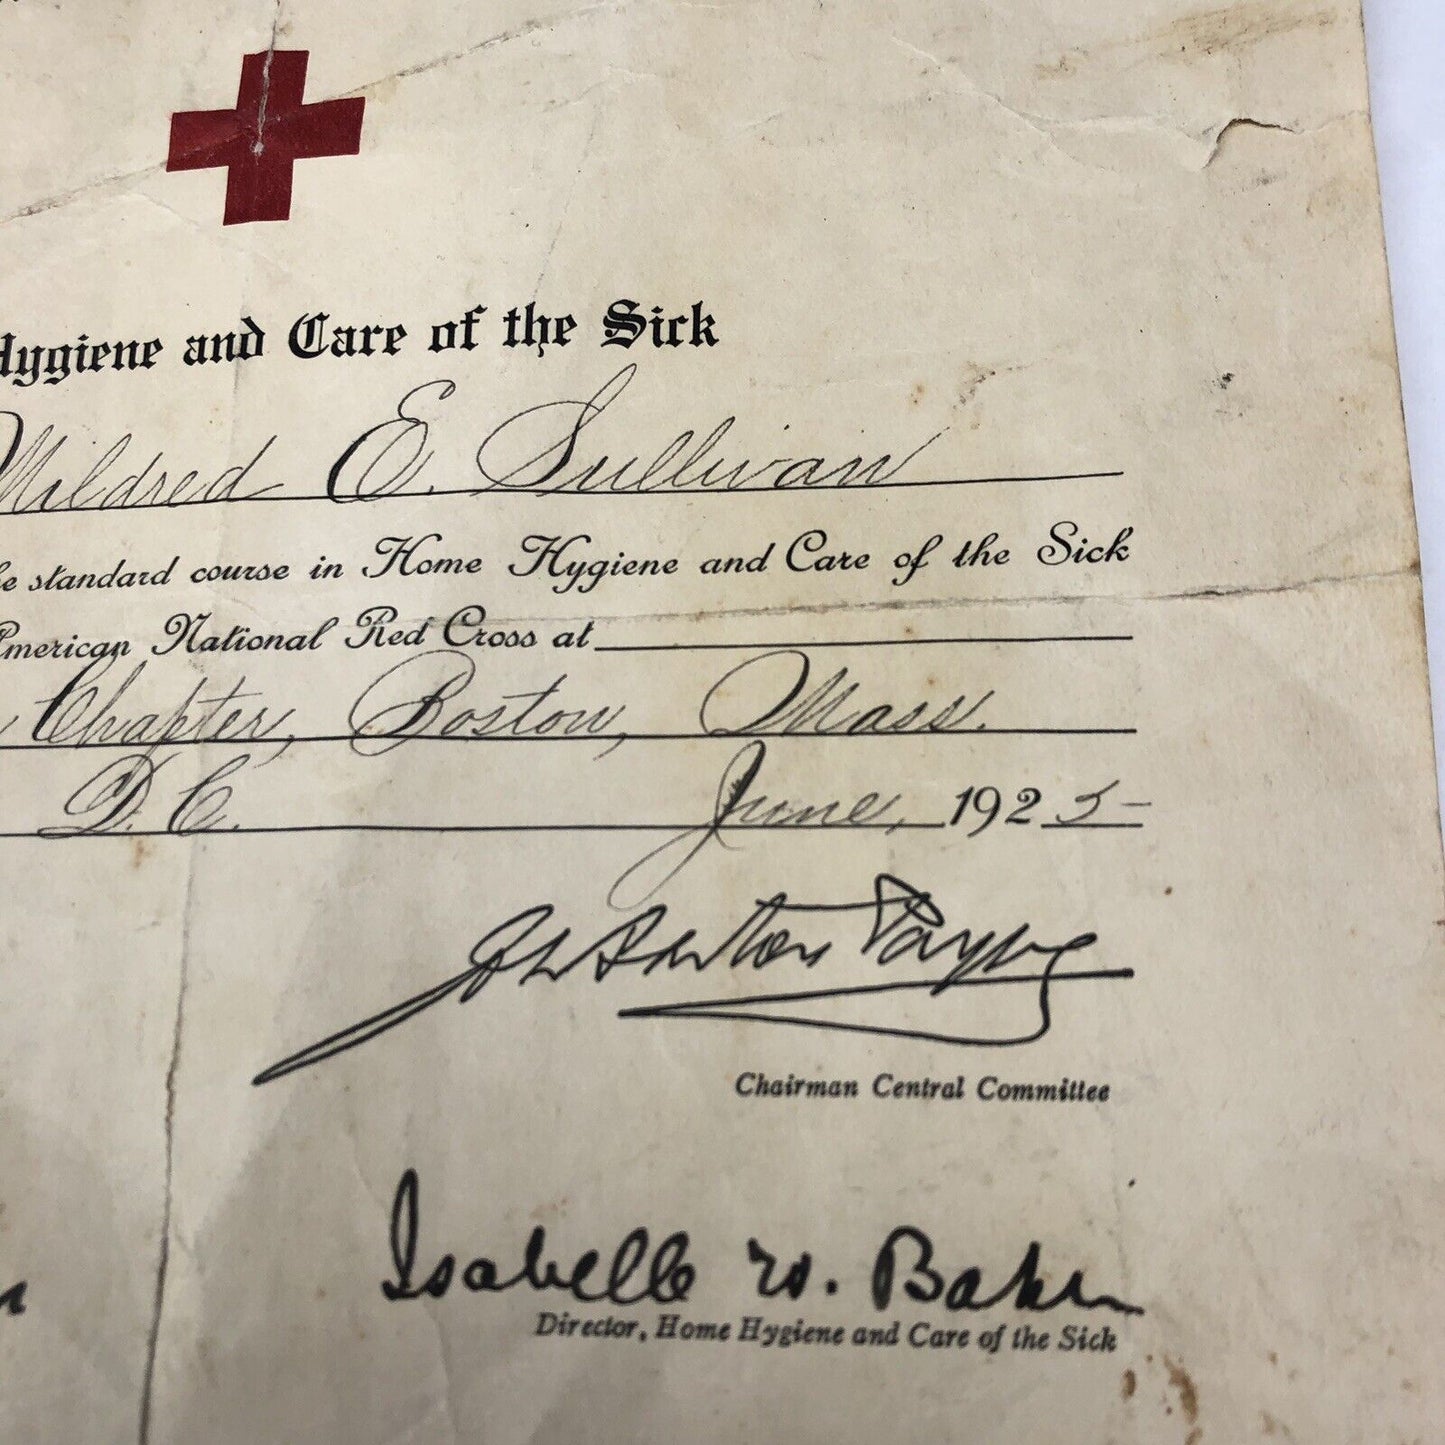 Hygiene and Care of the Sick
Mildred E. Sullivan
standard course in Home Hygiene and Care of the Sick
American National Red Cross at
Chapter, Boston, Mass.
D. C. June, 1925-
John Barton Payne
Chairman Central Committee
Isabelle W. Baker
Director, Home Hygiene and Care of the Sick